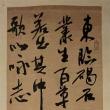 東臨碣石
叢生百草
若出其中
歌以詠志